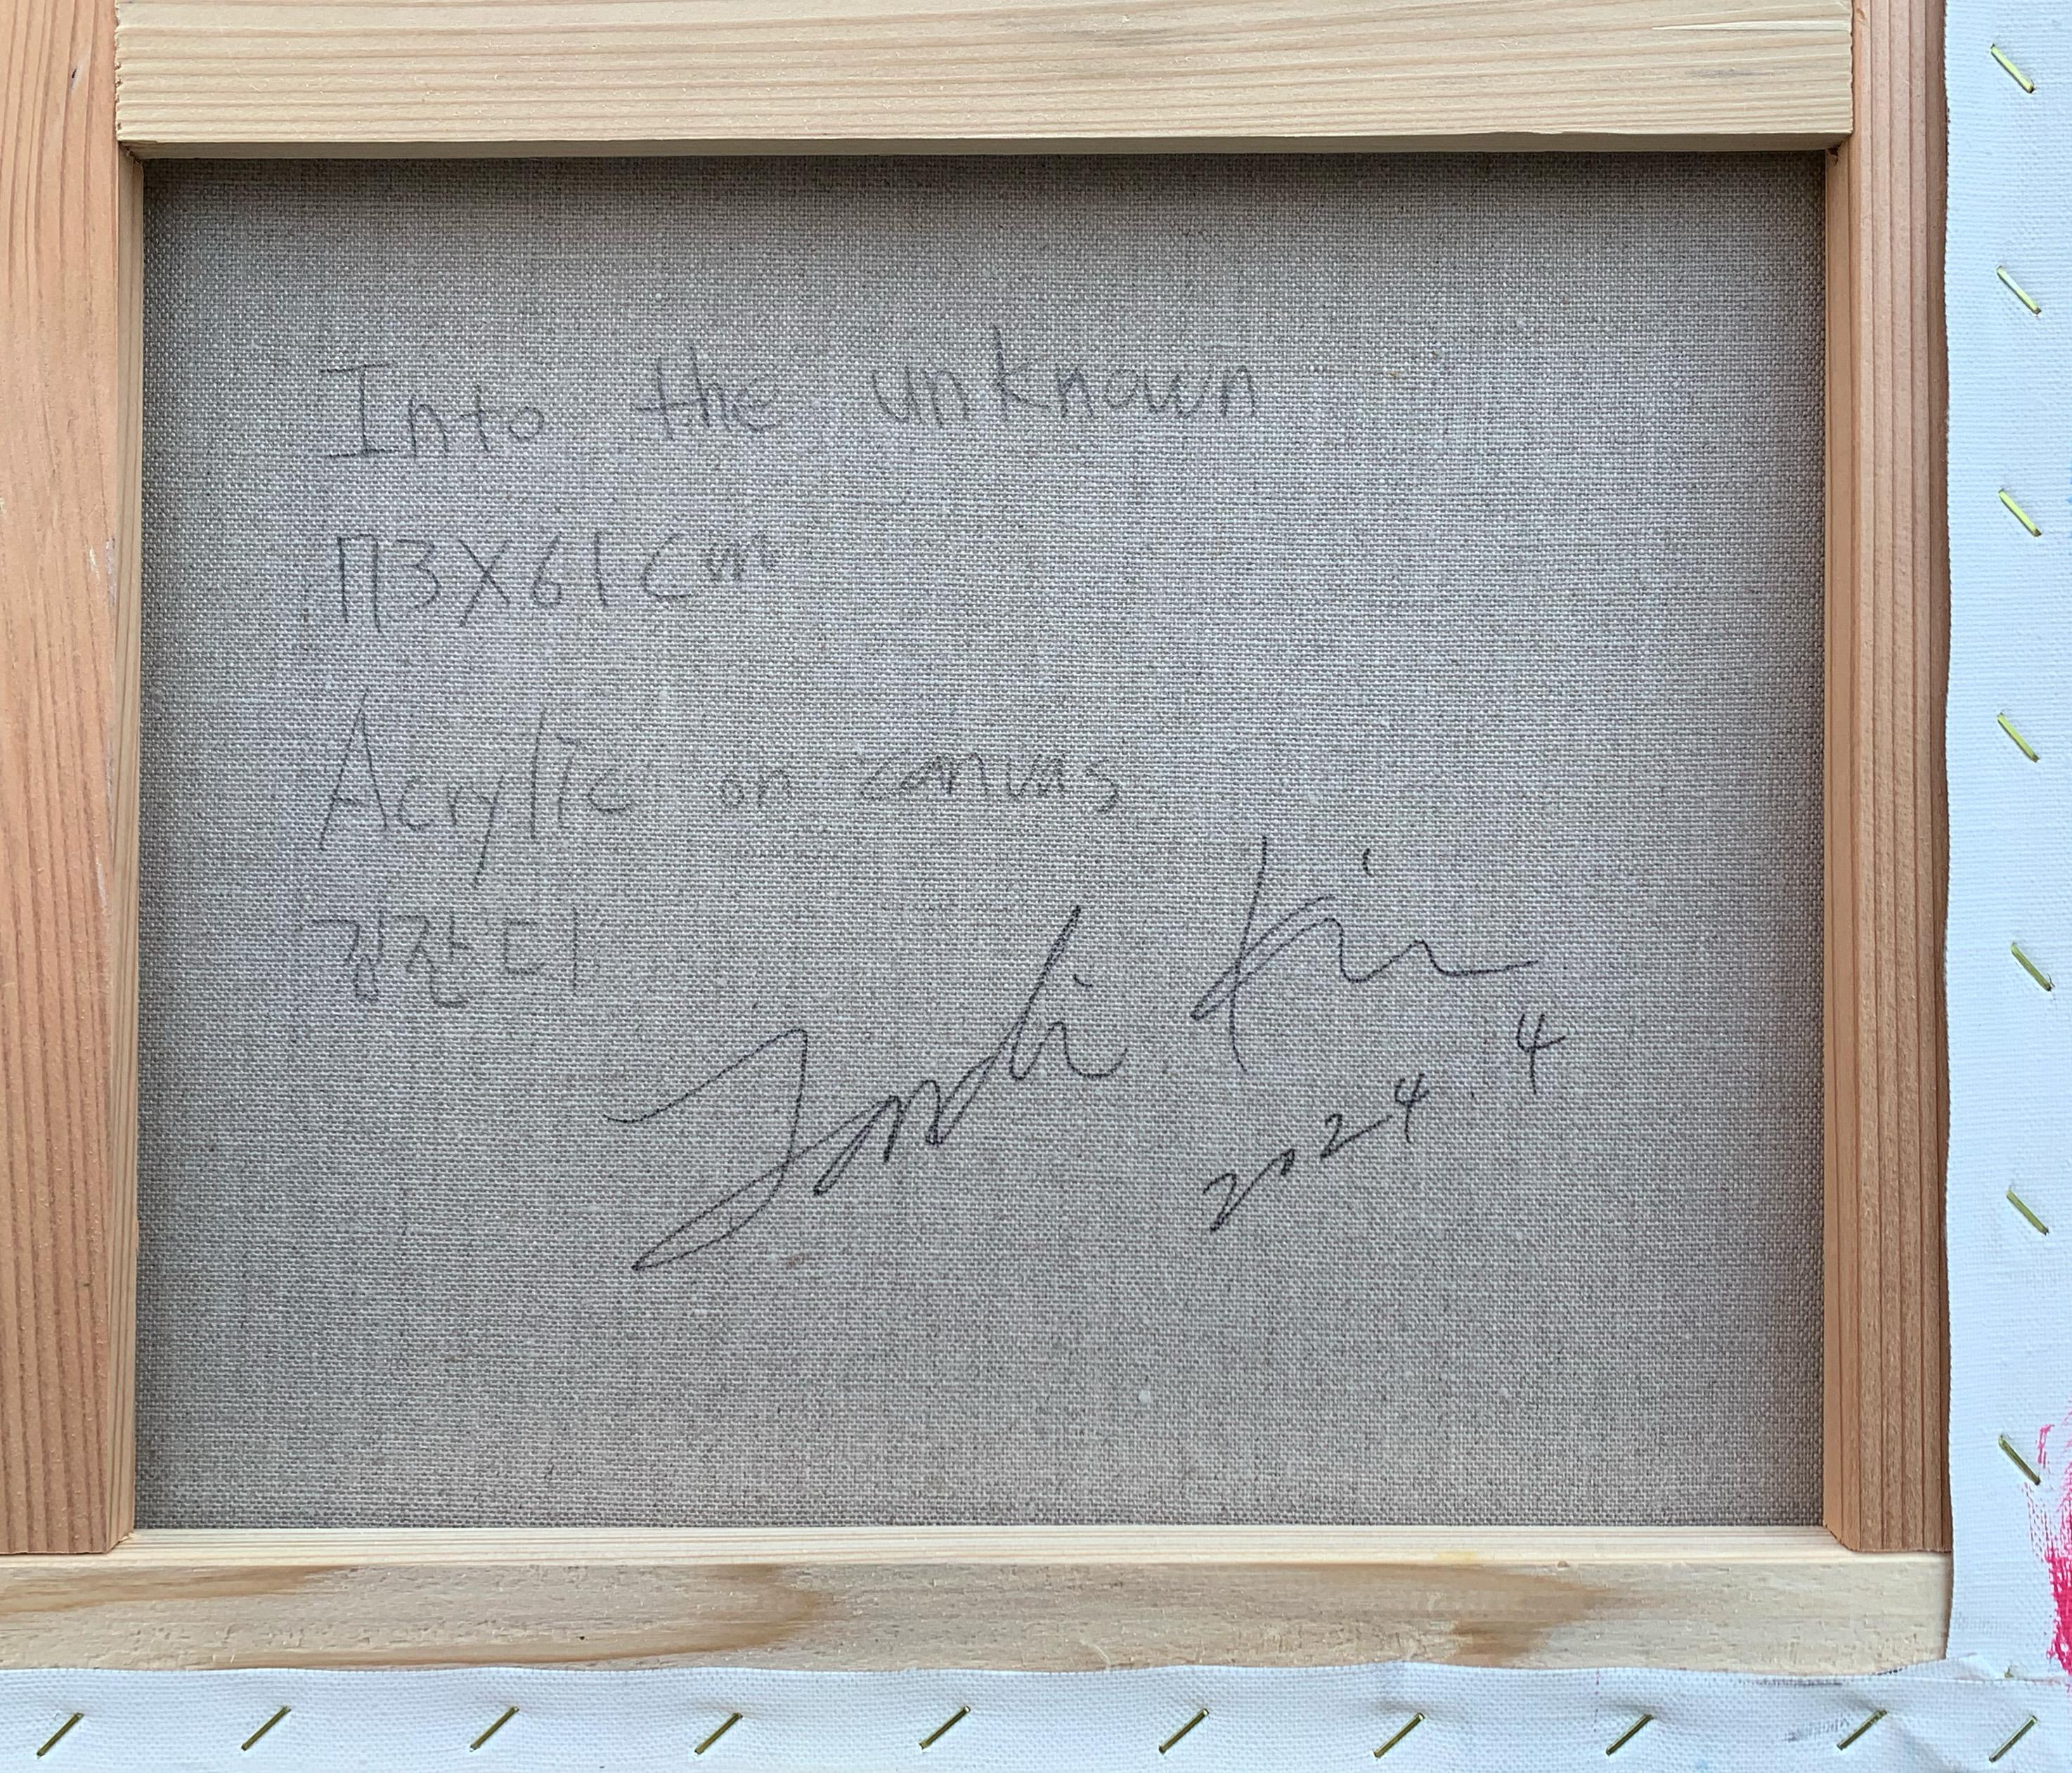 Into the unknown
73X61cm
Acrylic on canvas
김잔디
Jandi Kim
2024.4